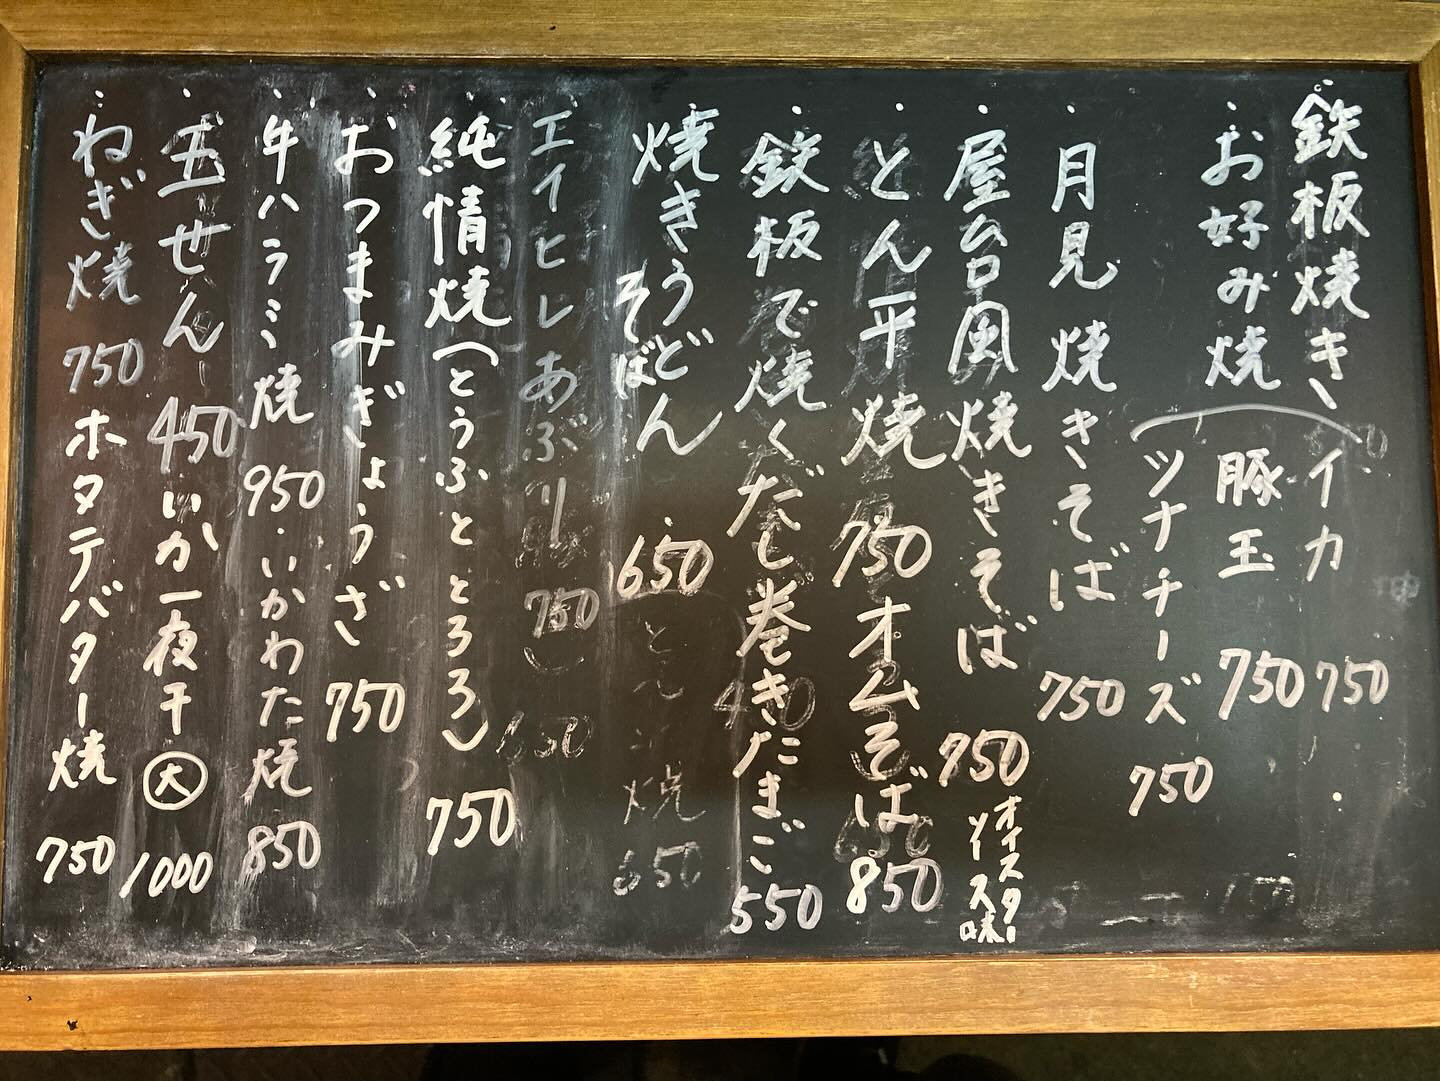 鉄板焼き
お好み焼
イカ 750
豚玉 750
ツナチーズ 750
月見焼きそば 750
屋台風焼きそば 750 オイスターソース味
とん平焼 750 オムそば 850
鉄板で焼くだし巻きたまご 550
焼きうどん
そば
650
とん平焼 650
エイヒレあぶり 750
純情焼(とうふととろろ) 750
おつまみぎょうざ 750
牛ハラミ焼 950・いかわた焼 850
五せん 450 いか一夜干 大 1000
ねぎ焼 750 ホタテバター焼 750